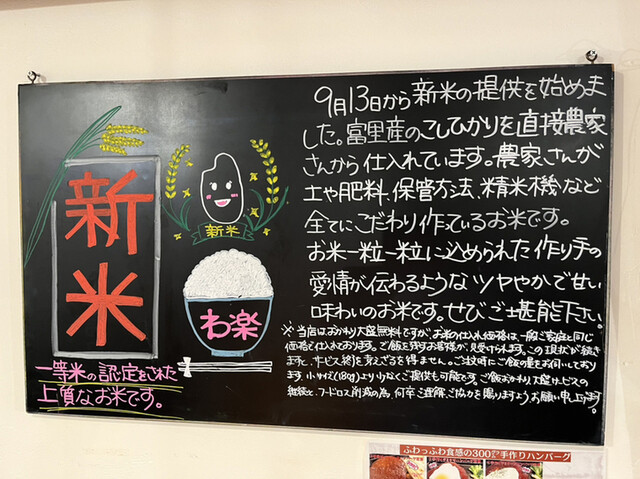 新米
新米
わ楽
一等米の認定をされた
上質なお米です。
9月13日から新米の提供を始めま
した。富里産のこしひかりを直接農家
さんから仕入れています。農家さんが
土や肥料、保管方法、精米機など
全てにこだわり作っているお米です。
お米一粒一粒に込められた作り手の
愛情が伝わるようなツヤやかで甘い
味わいのお米です。ぜひご堪能下さい。
※当店はおかわり大盛無料ですが、お米の仕入れ価格は一般ご家庭と同じ
価格で仕入れております。ご飯を残すお客様が見受けられます。この現状が続き
ますと、サービス終了を考えざる得ません。ご注文時にご飯の量をお伺いしており
ます。小サイズ(180g)より少なくご提供も可能です。ご飯おかわり、大盛サービスの
継続と、フードロス削減の為、何卒ご理解、ご協力を賜りますようお願い申し上げます。
ふわっふわ食感の300gの手作りハンバーグ